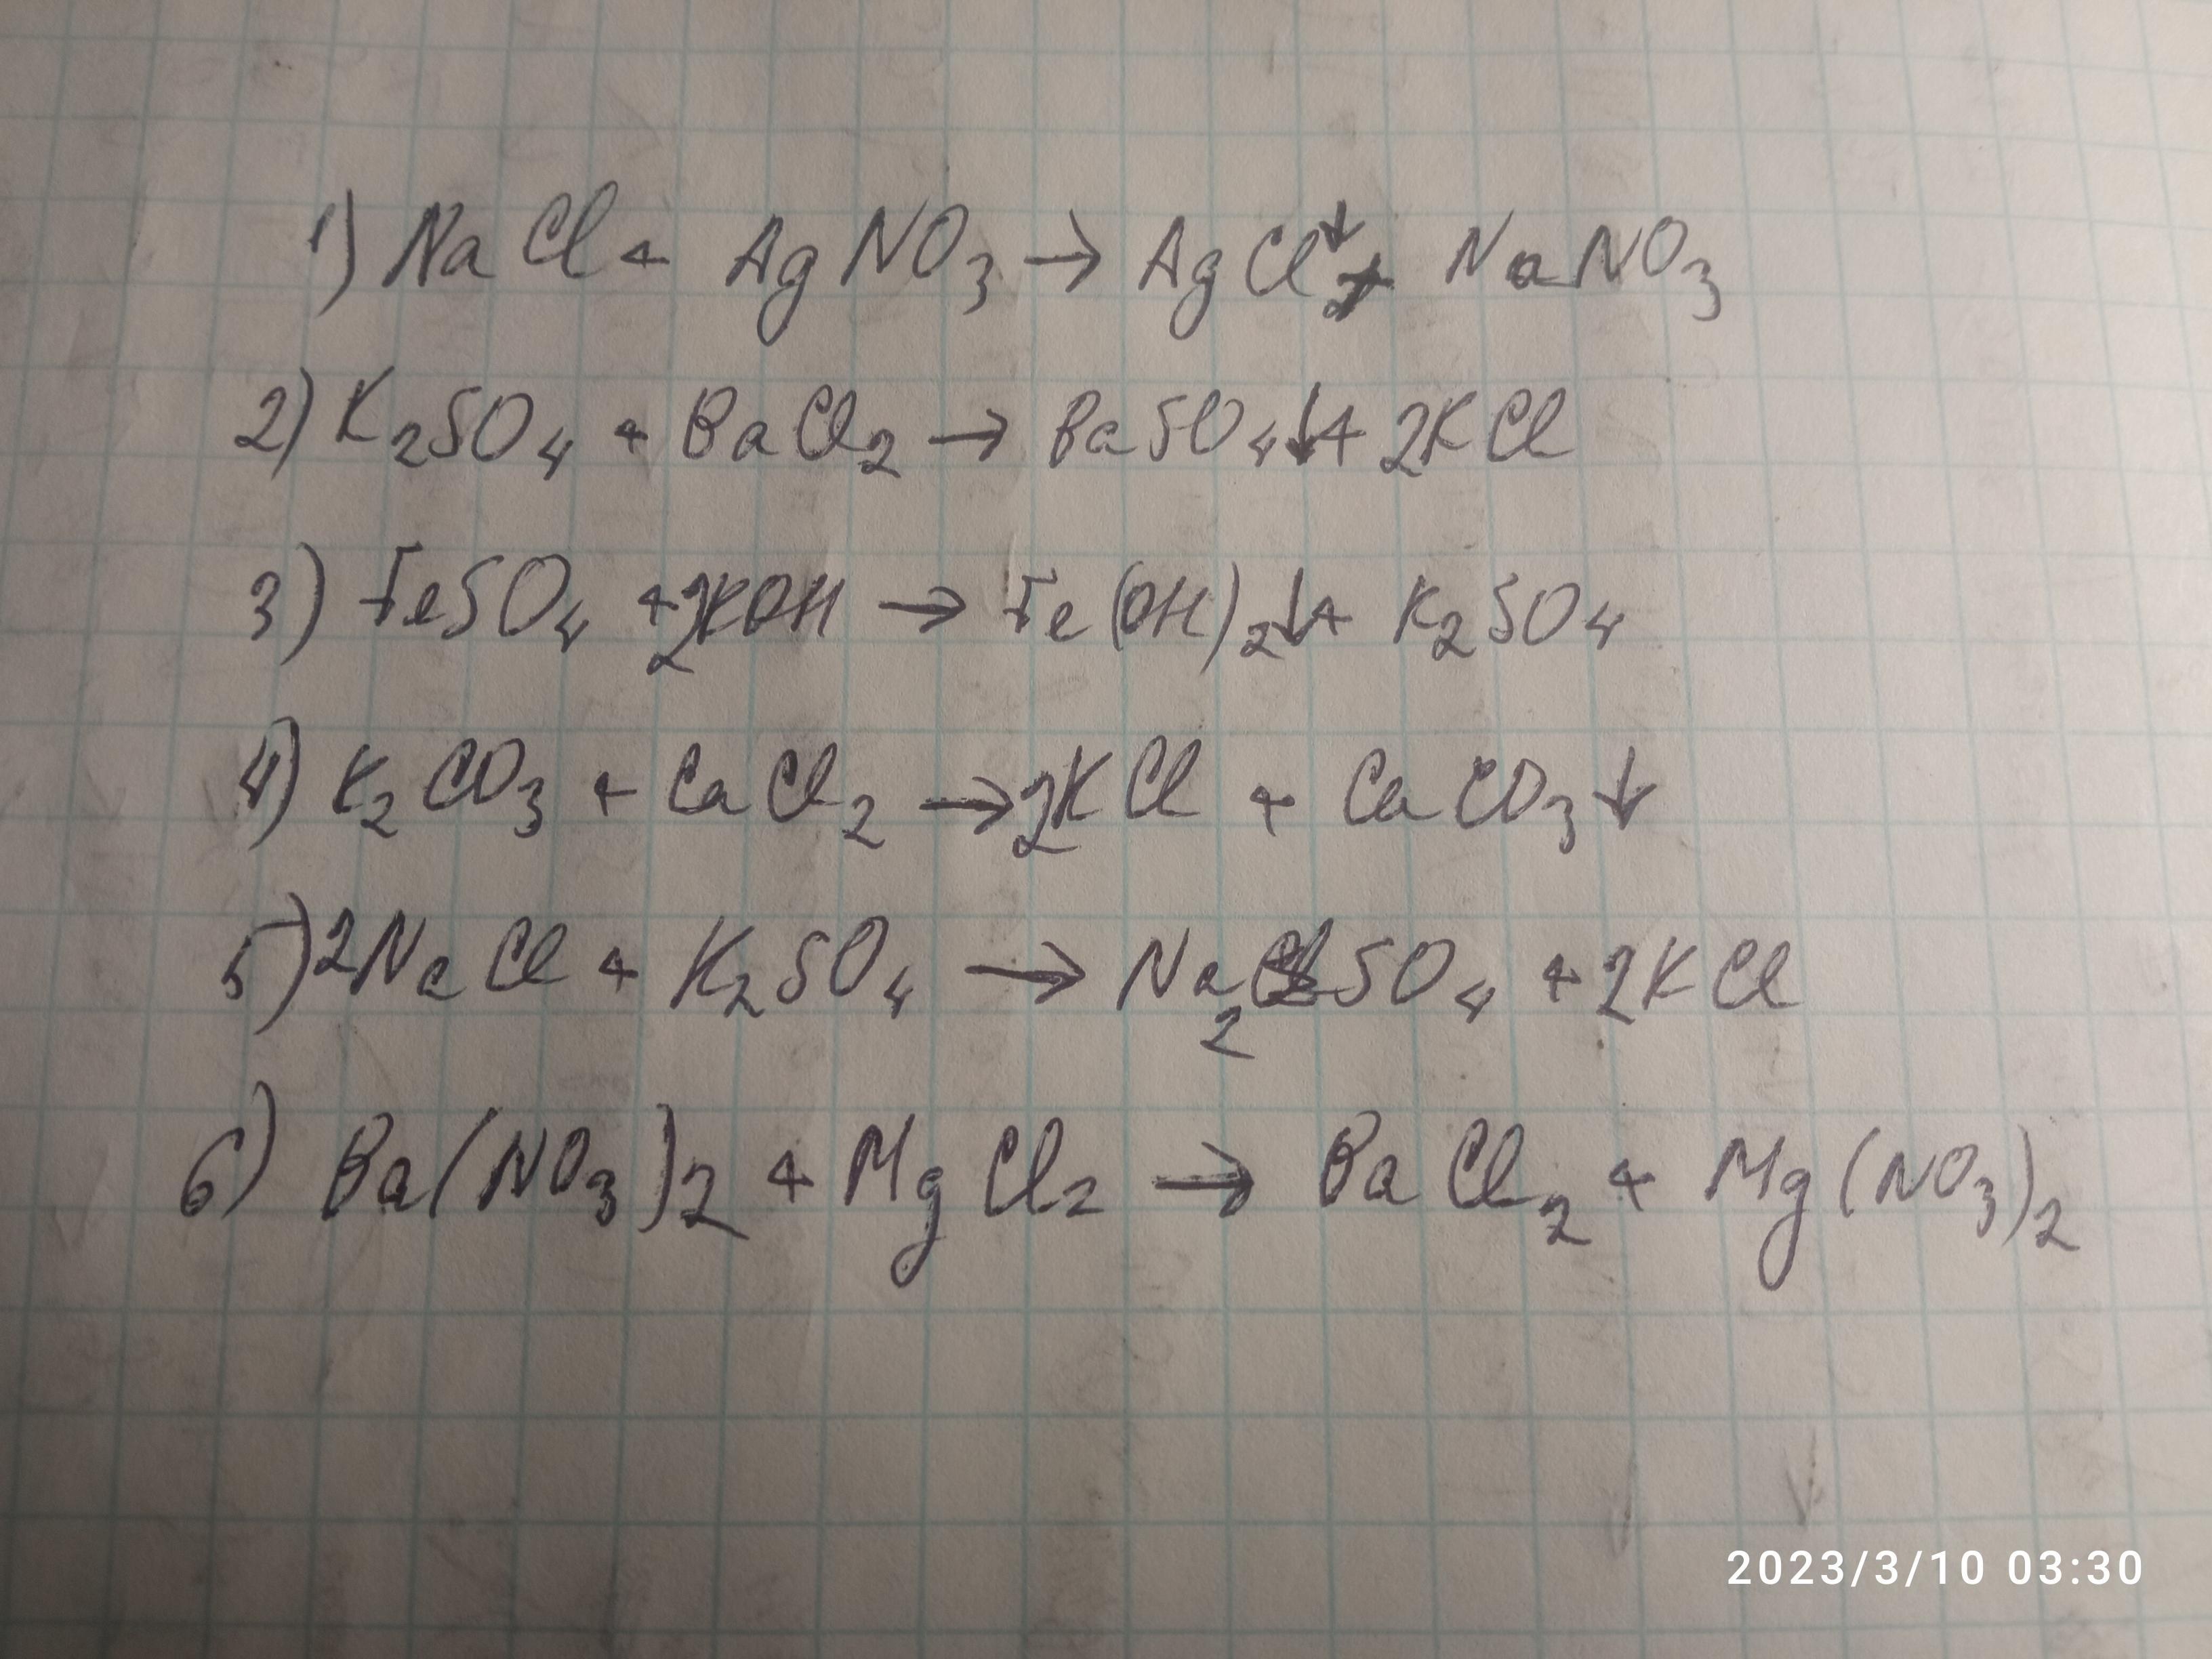 1) NaCl + AgNO₃ → AgCl↓ + NaNO₃
2) K₂SO₄ + BaCl₂ → BaSO₄↓ + 2KCl
3) FeSO₄ + 2KOH → Fe(OH)₂↓ + K₂SO₄
4) K₂CO₃ + CaCl₂ → 2KCl + CaCO₃↓
5) 2NaCl + K₂SO₄ → Na₂SO₄ + 2KCl
6) Ba(NO₃)₂ + MgCl₂ → BaCl₂ + Mg(NO₃)₂
2023/3/10 03:30